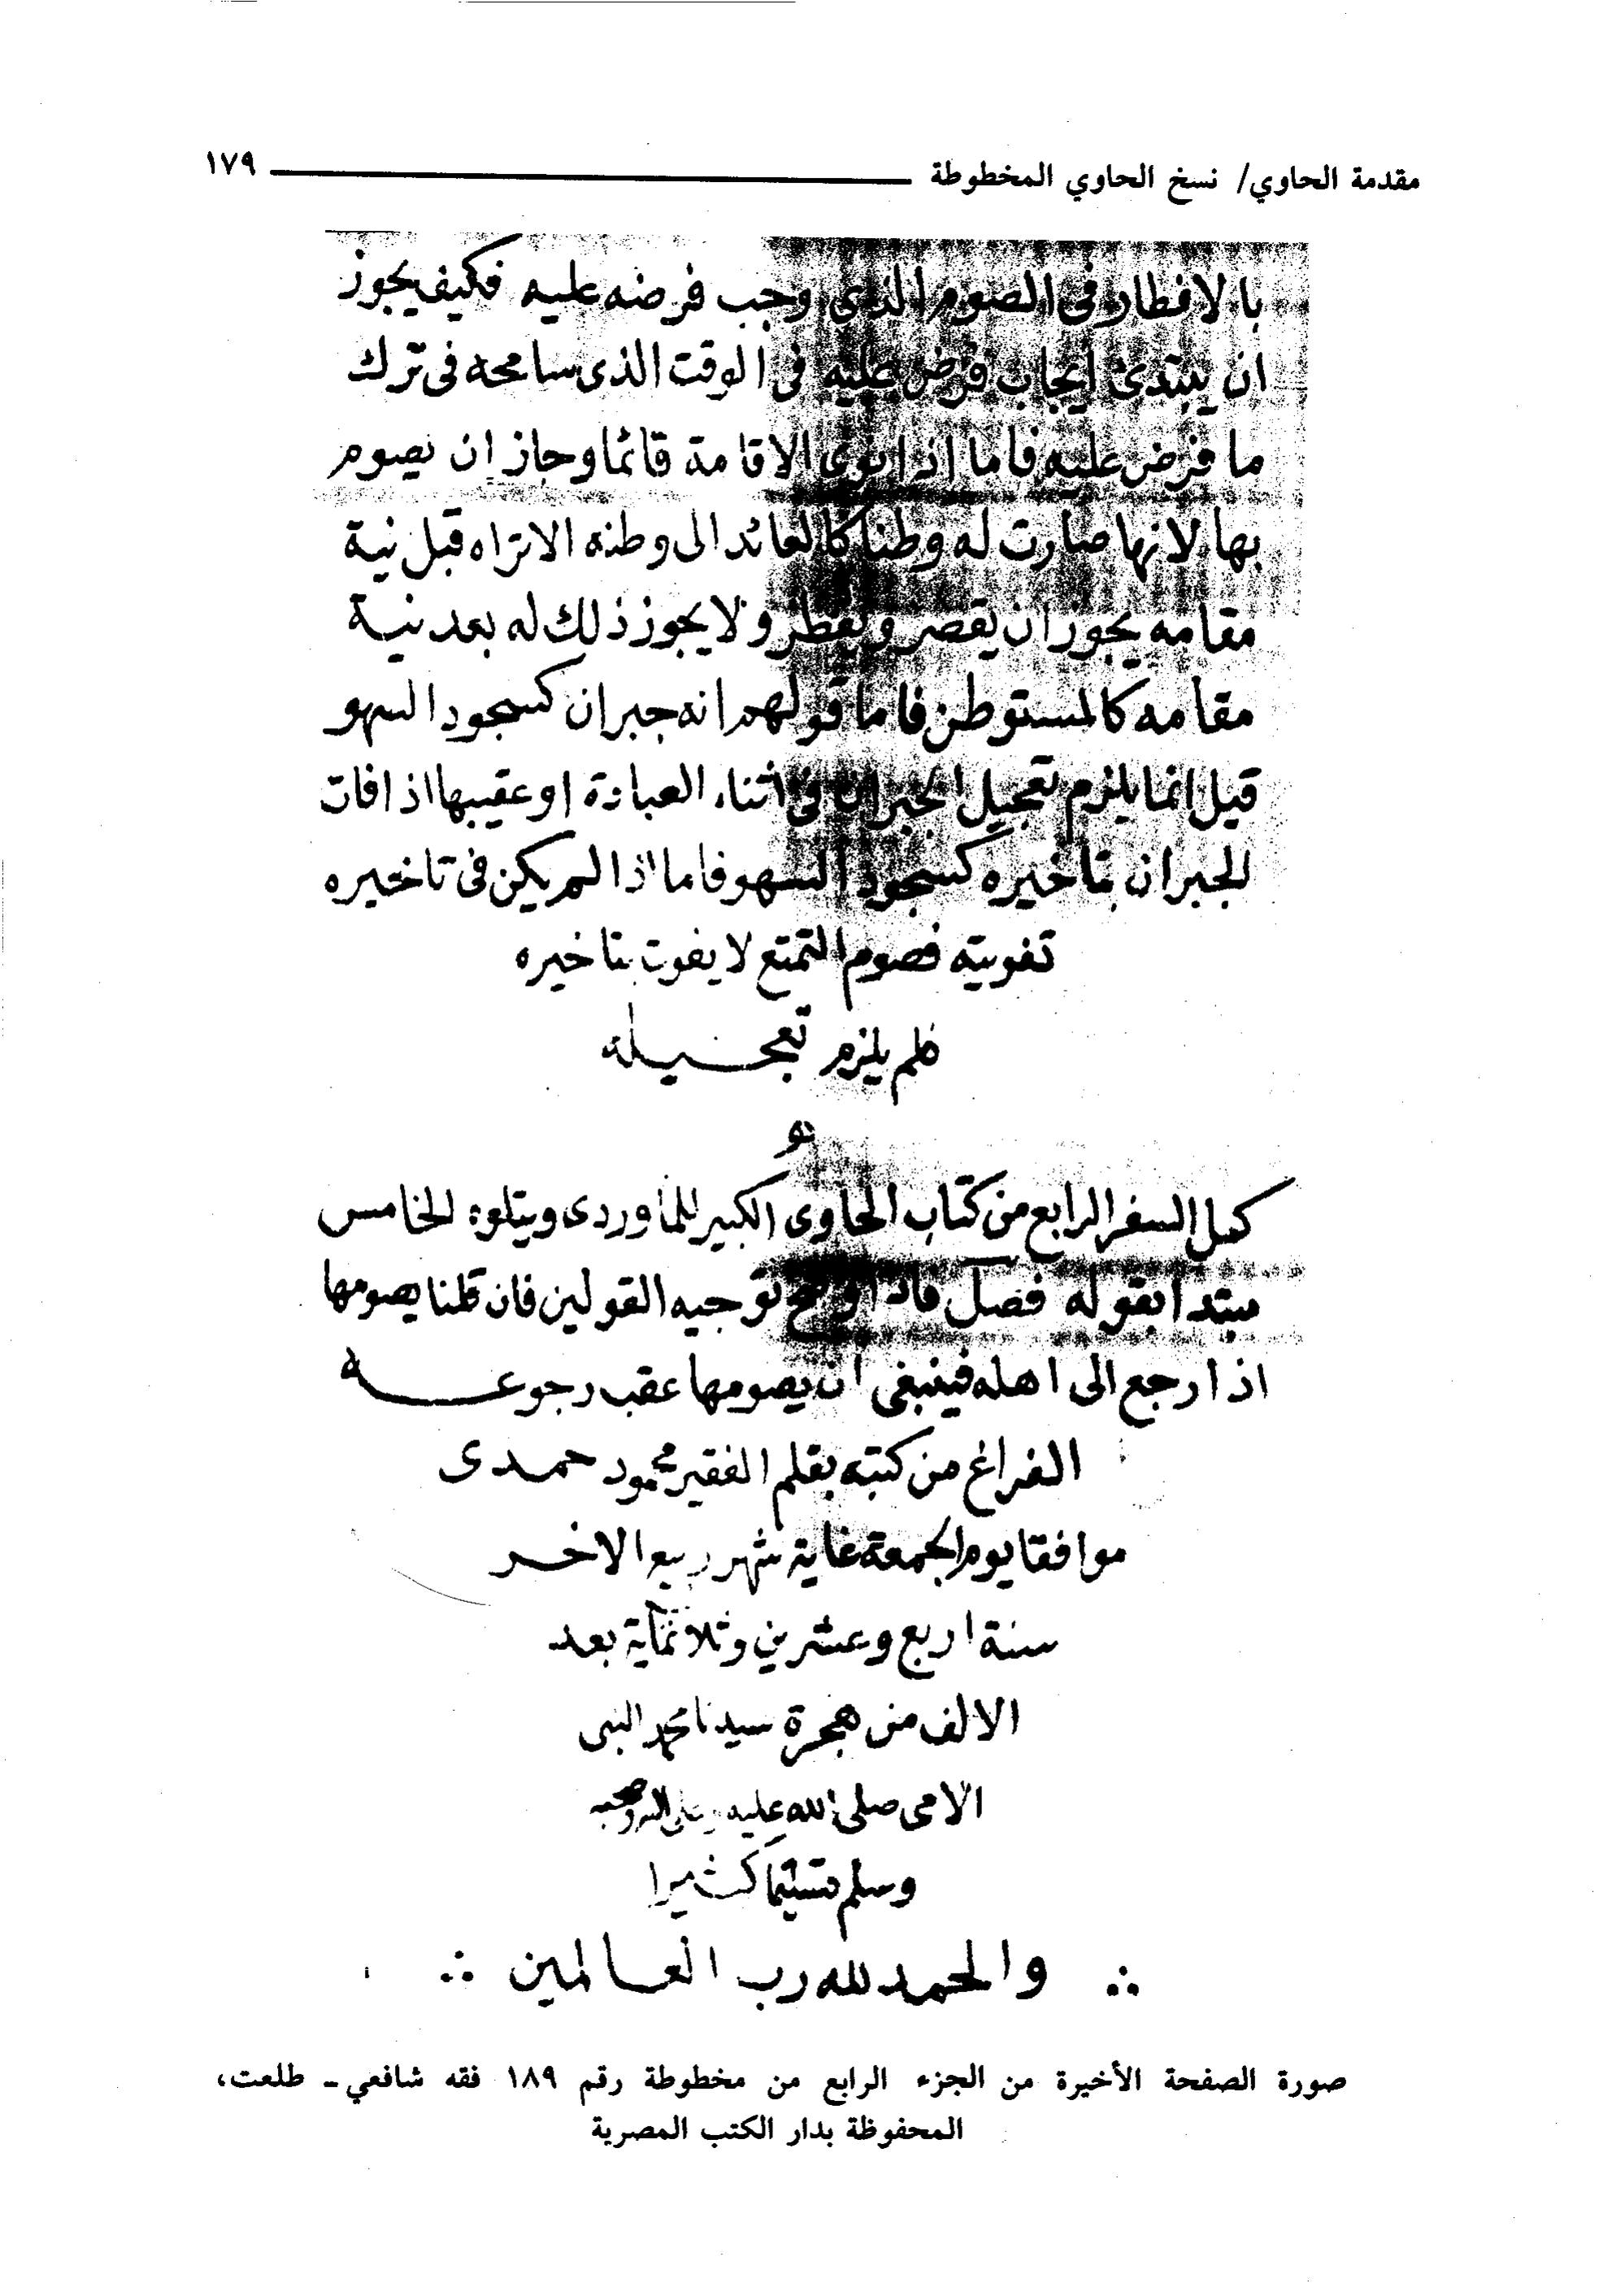 مقدمة الحاوي/ نسخ الحاوي المخطوطة ١٧٩
بالافطار فى الصوم الذى وجب فرضه عليه فكيف يجوز
ان يبتدئ ايجاب فرض عليه فى الوقت الذى سامحه فى ترك
ما فرض عليه فاما اذا نوى الاقامة قائما وجاز ان يصوم
بها لانها صارت له وطنا كالعائد الى وطنه الا تراه قبل نية
مقامه يجوز ان يقصر ويفطر ولا يجوز ذلك له بعد نية
مقامه كالمستوطن فاما قولهم انه جبران كسجود السهو
قيل انما يلزم تعجيل الجبران فى اثناء العبادة او عقيبها اذا فات
الجبران بتاخيره كسجود السهو فاما اذا لم يكن فى تاخيره
تفويته فصوم التمتع لا يفوت بتاخيره
فلم يلزم تعجيله
كمل السفر الرابع من كتاب الحاوى الكبير للماوردى ويتلوه الخامس
مبتدا بقوله فصل فاذا وضح توجيه القولين فان قلنا يصومها
اذا رجع الى اهله فينبغى ان يصومها عقب رجوعه
الفراغ من كتبه بقلم الفقير محمود حمدى
موافقا يوم الجمعة غاية شهر ربيع الاخر
سنة اربع وعشرين وثلاثماية بعد
الالف من هجرة سيدنا محمد النبى
الامى صلى الله عليه وعلى اله وصحبه
وسلم تسليما كثيرا
∴ والحمد لله رب العالمين ∴
صورة الصفحة الأخيرة من الجزء الرابع من مخطوطة رقم ١٨٩ فقه شافعي - طلعت،
المحفوظة بدار الكتب المصرية